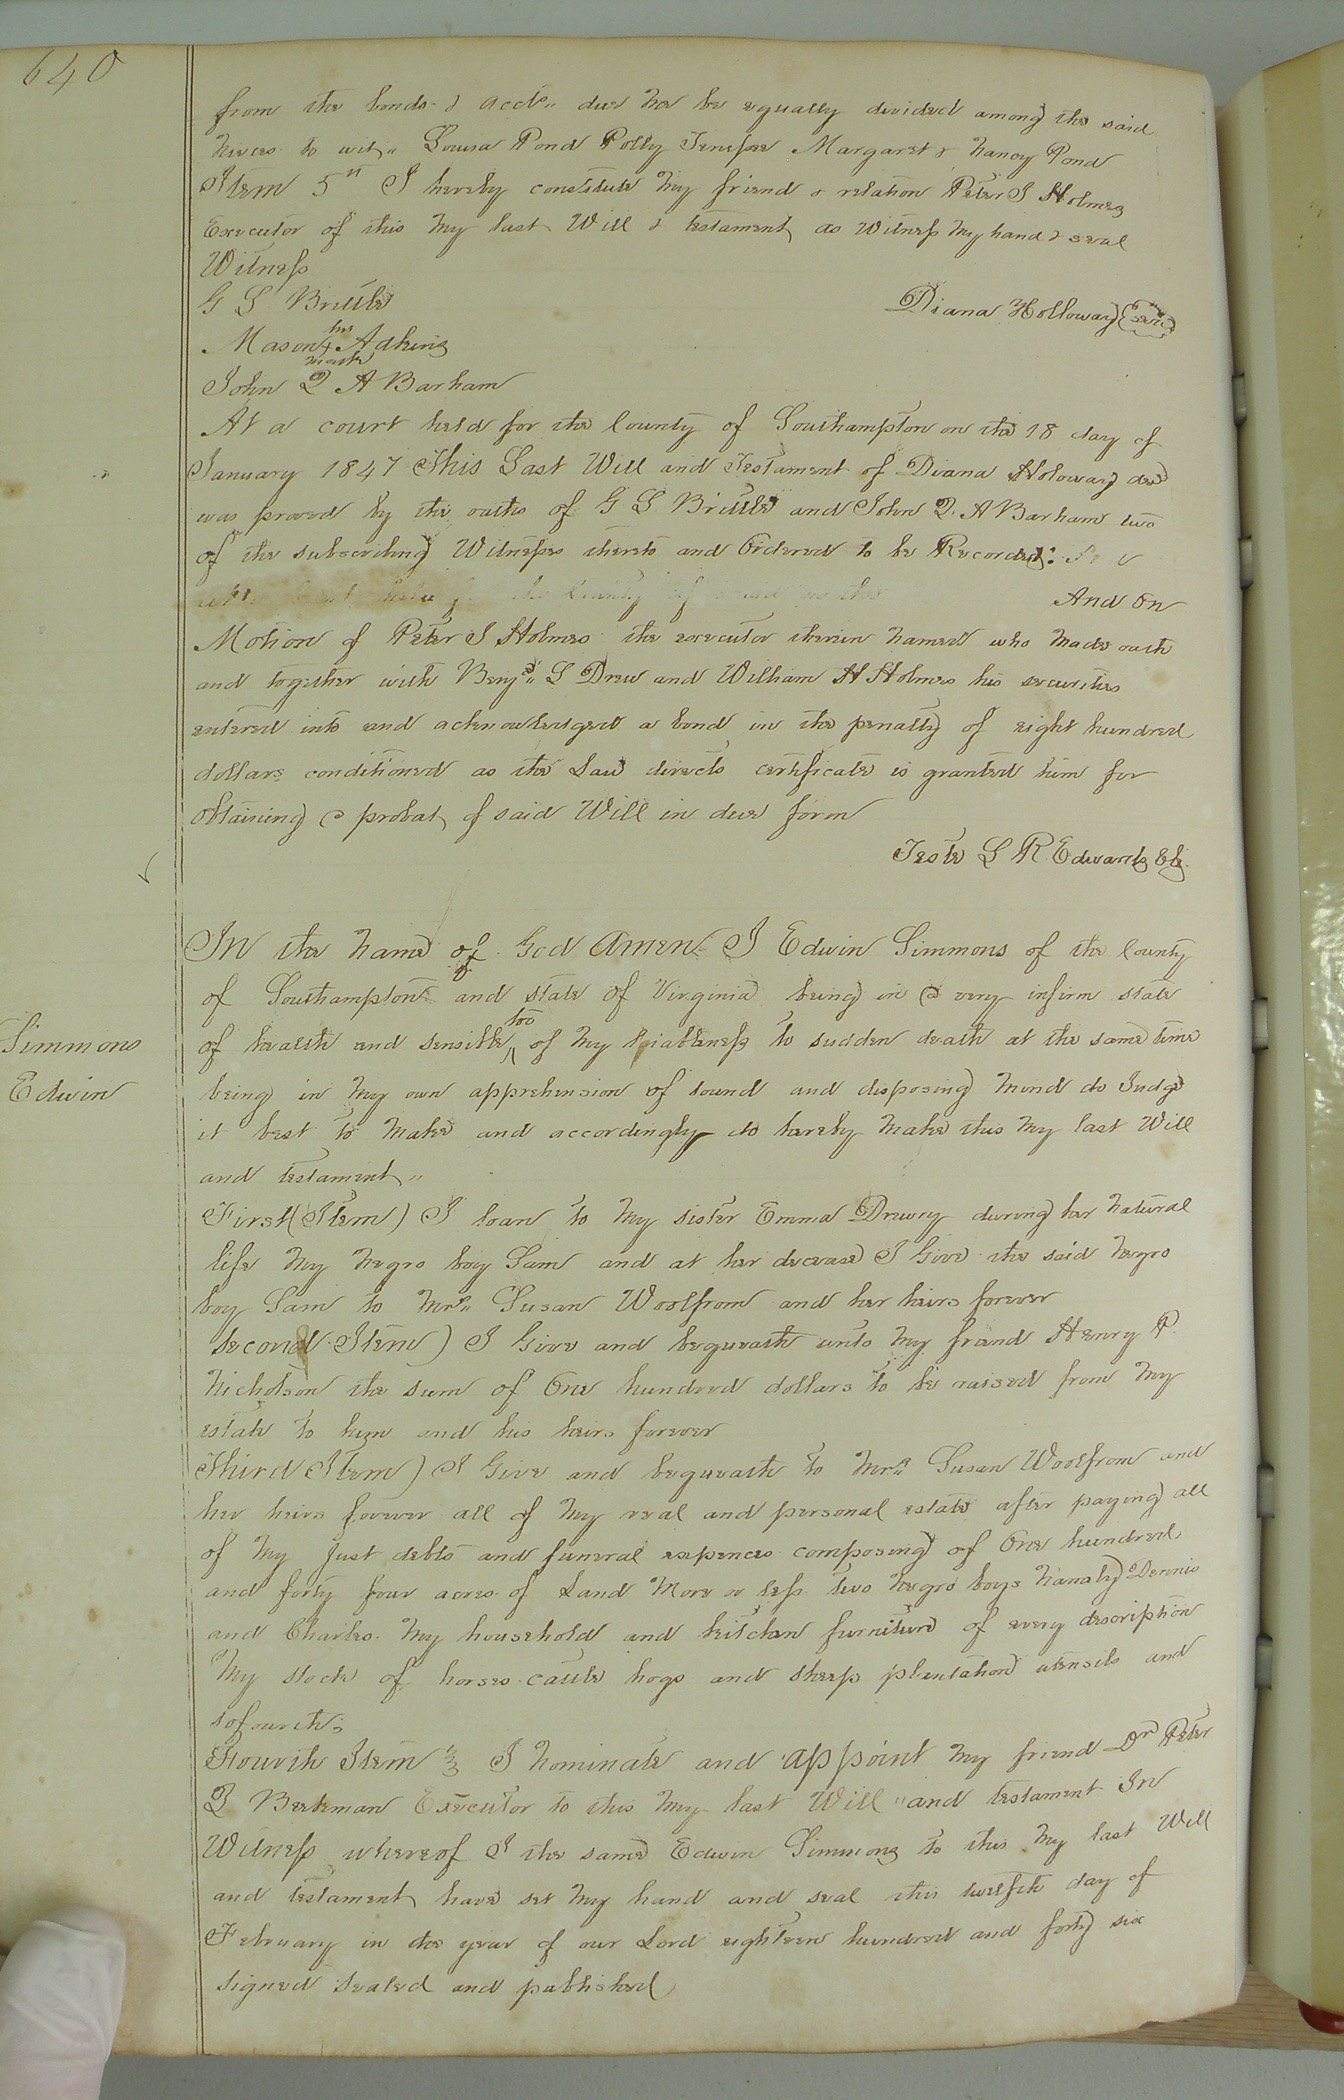 640
from the bonds & accts " due me be equally divided among the said
neices to wit " Louisa Pond Polly Margaret & Nancy Pond
Item 5th I hereby constitute my friend & relation Peter J Holmes
Executor of this my last Will & testament as Witness my hand & seal
Witness
G L Brittle
Diana Holloway Seal
his
Mason + Adkins
mark
John Q A Barham
At a court held for the County of Southampton on the 18 day of
January 1847 This Last Will and Testament of Diana Holoway decd
was proved by the oaths of G L Brittle and John Q. A Barham two
of the subscribing Witnesses thereto and Ordered to be Recorded:
the County of
And On
Motion of Peter J Holmes the executor therein named who made oath
and together with Benjn " S Drew and William H Holmes his securites
entered into and acknowledged a bond in the penalty of eight hundred
dollars conditioned as the Law directs certificate is granted him for
obtaining a probat of said Will in due form
Teste L R Edwards Clk
In the name of God Amen I Edwin Simmons of the County
of Southampton and state of Virginia being in a very infirm state
too
of health and sensible of my liableness to sudden death at the same time
Simmons
Edwin
being in my own apprehension of sound and disposing mind do Judge
it best to make and accordingly do hereby make this my last Will
and testament "
First (Item) I loan to my sister Emma Drewry during her natural
life my negro boy Sam and at her decease I Give the said negro
boy Sam to Mrs " Susan Woolfrom and her heirs forever
Second Item) I Give and bequeath unto my friend Henry P
Nicholson the sum of One hundred dollars to be raised from my
estate to him and his heirs forever
Third Item) I Give and bequeath to Mrs " Susan Woolfrom and
her heirs forever all of my real and personal estate after paying all
of my just debts and funeral expences composing of One hundred
and forty four acres of Land more or less two negro boys namely Dennis
and Charles. my household and kitchen furniture of every description
my stock of horses cattle hogs and sheep plantation utensils and
sofourth;
Fourth Item I nominate and appoint my friend Dr Peter
Beekman Executor to this my last Will and testament In
Witness whereof I the same Edwin Simmons to this my last Will
and testament have set my hand and seal this twelfth day of
February in the year of our Lord eighteen hundred and forty six
signed sealed and published